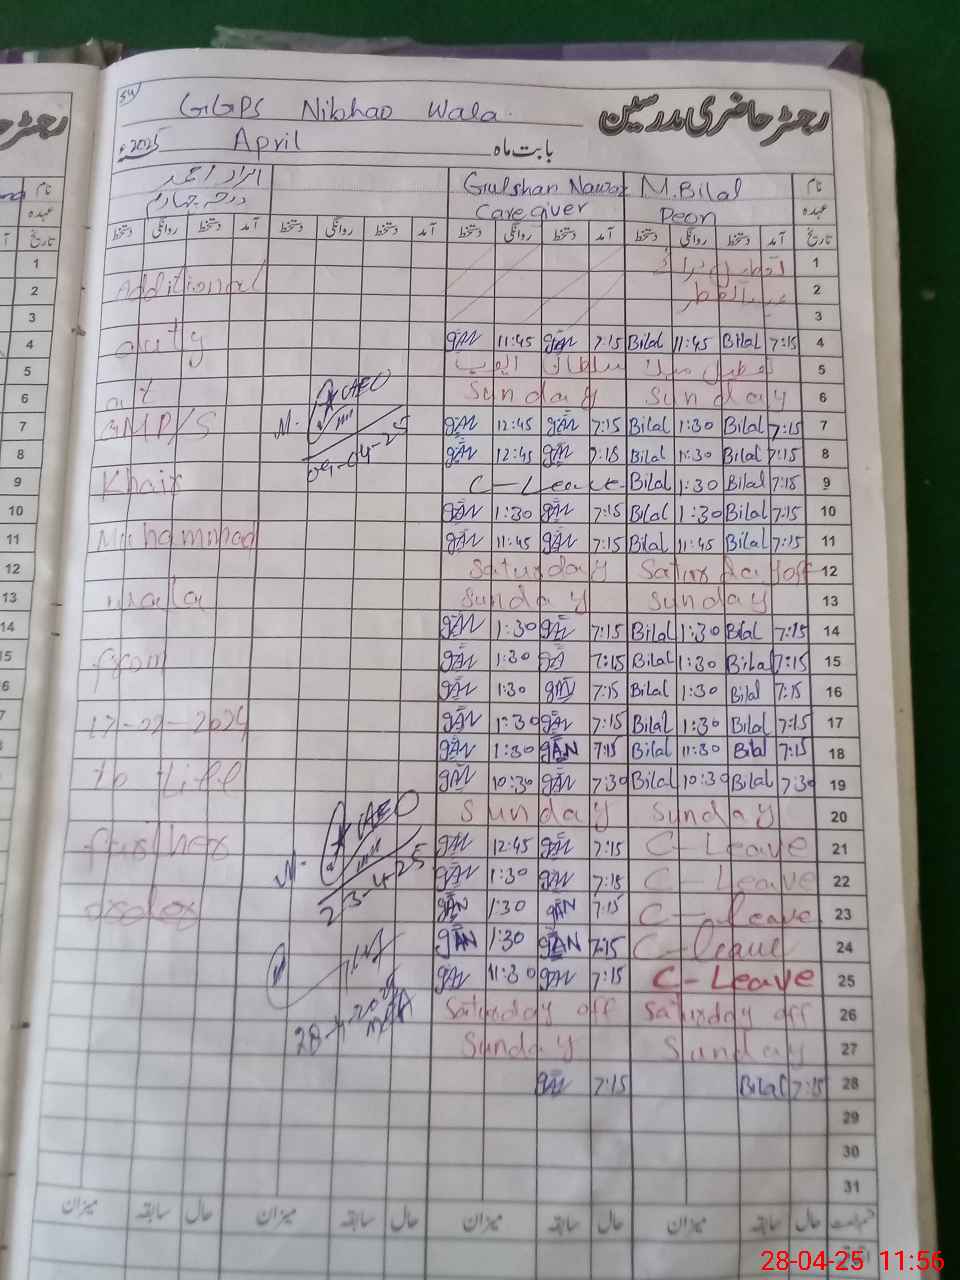 54
GGPS Nibhao Wala.
رجسٹر حاضری مدرسین
2025 April بابت ماہ
Gulshan Nawaz M.Bilal نام
درجہ چہارم Care giver Peon عہدہ
دستخط روانگی دستخط آمد دستخط روانگی دستخط آمد دستخط روانگی دستخط آمد دستخط روانگی دستخط آمد تاریخ
1
Additional 2
3
duty 11:45 7:15 Bilal 11:45 Bilal 7:15 4
5
at Sunday Sunday 6
GMP/S AEO 12:45 7:15 Bilal 1:30 Bilal 7:15 7
09-04-25 12:45 7:15 Bilal 1:30 Bilal 7:15 8
Khair C-Leave Bilal 1:30 Bilal 7:15 9
1:30 7:15 Bilal 1:30 Bilal 7:15 10
Muhammad 11:45 7:15 Bilal 11:45 Bilal 7:15 11
Saturday Saturday off 12
wala Sunday Sunday 13
1:30 7:15 Bilal 1:30 Bilal 7:15 14
from 1:30 7:15 Bilal 1:30 Bilal 7:15 15
1:30 7:15 Bilal 1:30 Bilal 7:15 16
1:30 7:15 Bilal 1:30 Bilal 7:15 17
1:30 7:15 Bilal 11:30 Bilal 7:15 18
to till 10:30 7:30 Bilal 10:30 Bilal 7:30 19
AEO Sunday Sunday 20
further 12:45 7:15 C-Leave 21
23-4-25 1:30 7:15 C-Leave 22
order 1:30 7:15 C-leave 23
1:30 7:15 C-leave 24
11:30 7:15 C-Leave 25
Saturday off Saturday off 26
Sunday Sunday 27
7:15 Bilal 7:15 28
29
30
31
میزان سابقہ حال میزان سابقہ حال میزان سابقہ حال میزان سابقہ حال
28-04-25 11:56